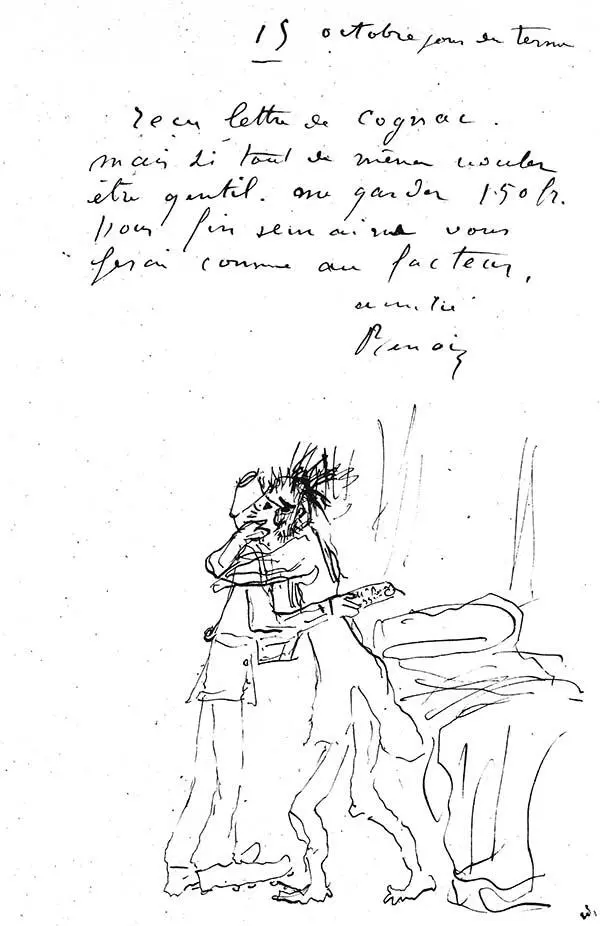 15 octobre jour du terme
reçu lettre de cognac.
mais si tout de même vouler
être gentil. me garder 150 fr.
pour fin semaine vous
ferai comme au facteur,
amitié